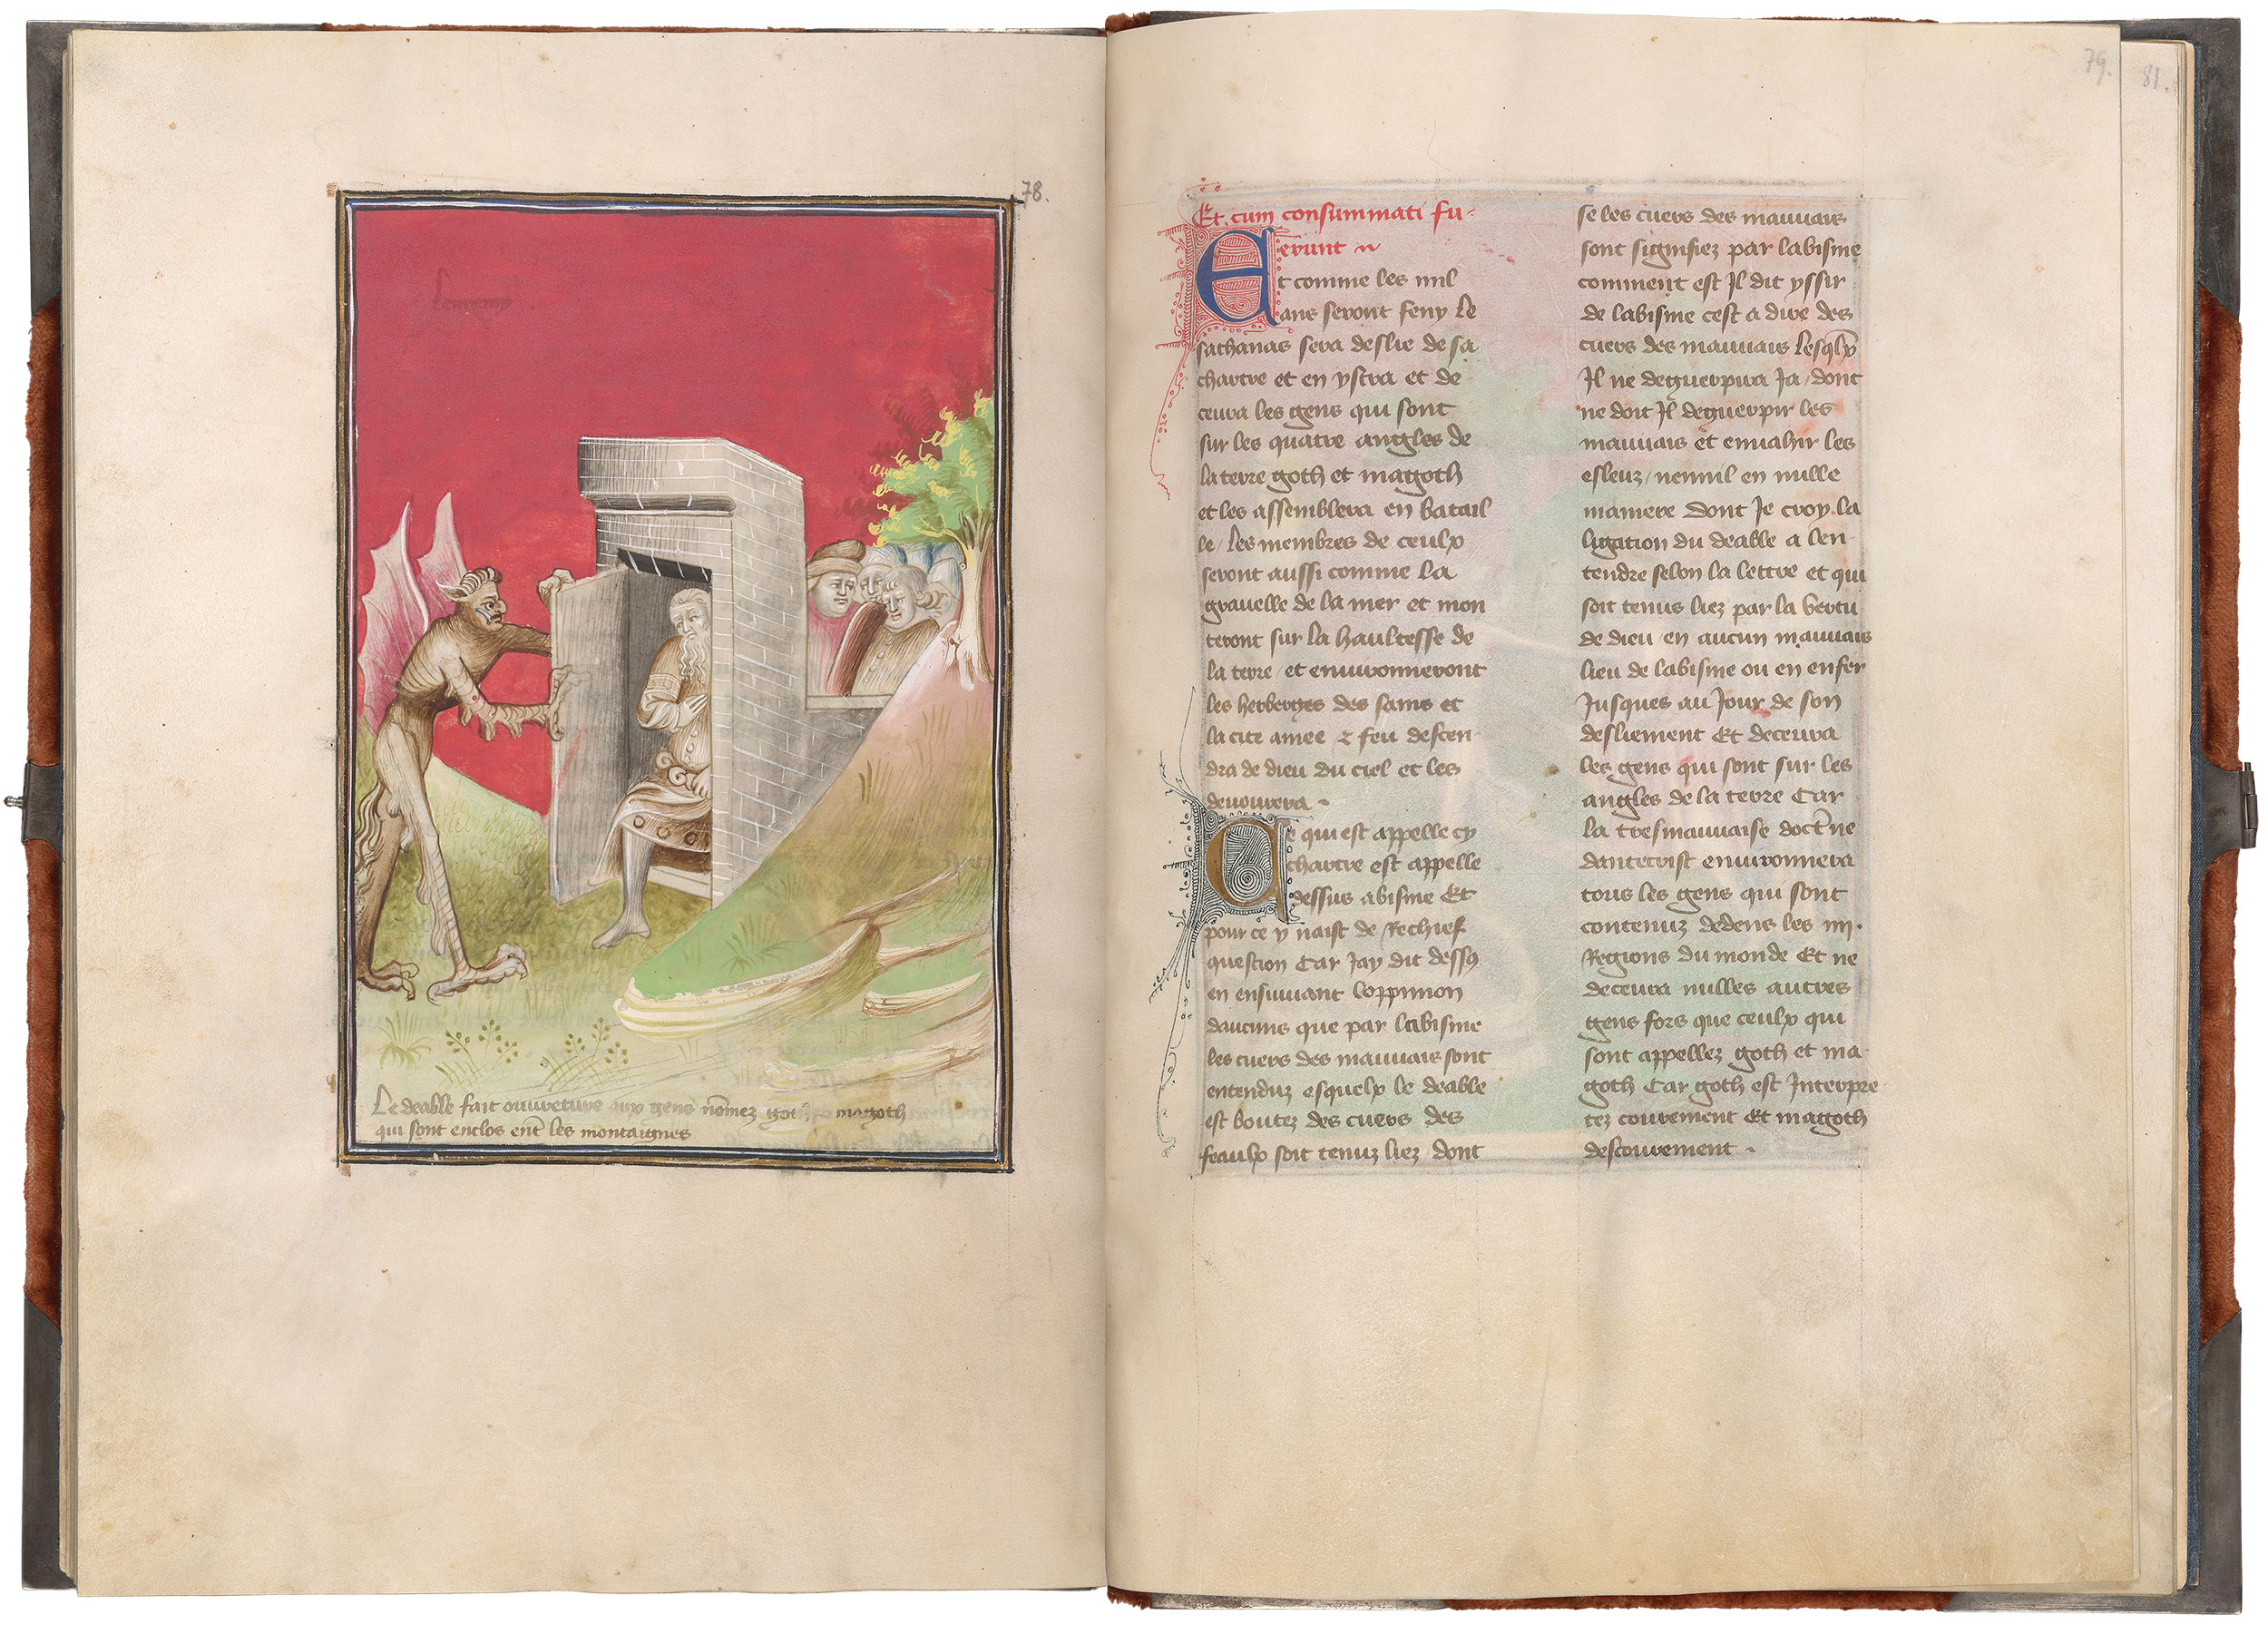 78.
Le deable fait ouverture aux gens nōmez goth magoth
qui sont enclos ent̄ les montaignes
79.
81.
Et cum consummati fu-
erunt
Et comme les mil
ans seront feny le
sathanas sera deslie de sa
chartre et en ystra et de
ceura les gens qui sont
sur les quatre angles de
la terre goth et magoth
et les assemblera en batail
le / les membres de ceulx
seront aussi comme la
gravelle de la mer et mon
teront sur la haultesse de
la terre / et environneront
les herberges des sains et
la cite amee & feu descen
dra de dieu du ciel et les
devourera
Ce qui est appelle cy
chartre est appelle
dessus abisme Et
pour ce y naist de Rechief
question Car Jay dit dessꝰ
en ensuivant loppinion
daucuns que par labisme
les cuers des mauvais sont
entenduz esquelx le deable
est boutez des cuers des
feaulx soit tenuz liez dont
se les cuers des mauvais
sont signifiez par labisme
comment est Il dit yssir
de labisme cest a dire des
cuers des mauvais lesqlx̄
Il ne deguerpira Ja / dont
ne doit Il deguerpir les
mauvais et envahir les
esleuz / nennil en nulle
maniere dont Je croy la
ligation du deable a len-
tendre selon la lettre et qui
soit tenus liez par la vertu
de dieu en aucun mauvais
lieu de labisme ou en enfer
Jusques au Jour de son
desliement Et deceura
les gens qui sont sur les
angles de la terre Car
la tresmauvaise doct̄ne
dantecrist environnera
tous les gens qui sont
contenuz dedens les iiii.
Regions du monde Et ne
deceura nulles autres
gens fors que ceulx qui
sont appellez goth et ma
goth Car goth est Interpre
tez couvrement Et magoth
descouvrement